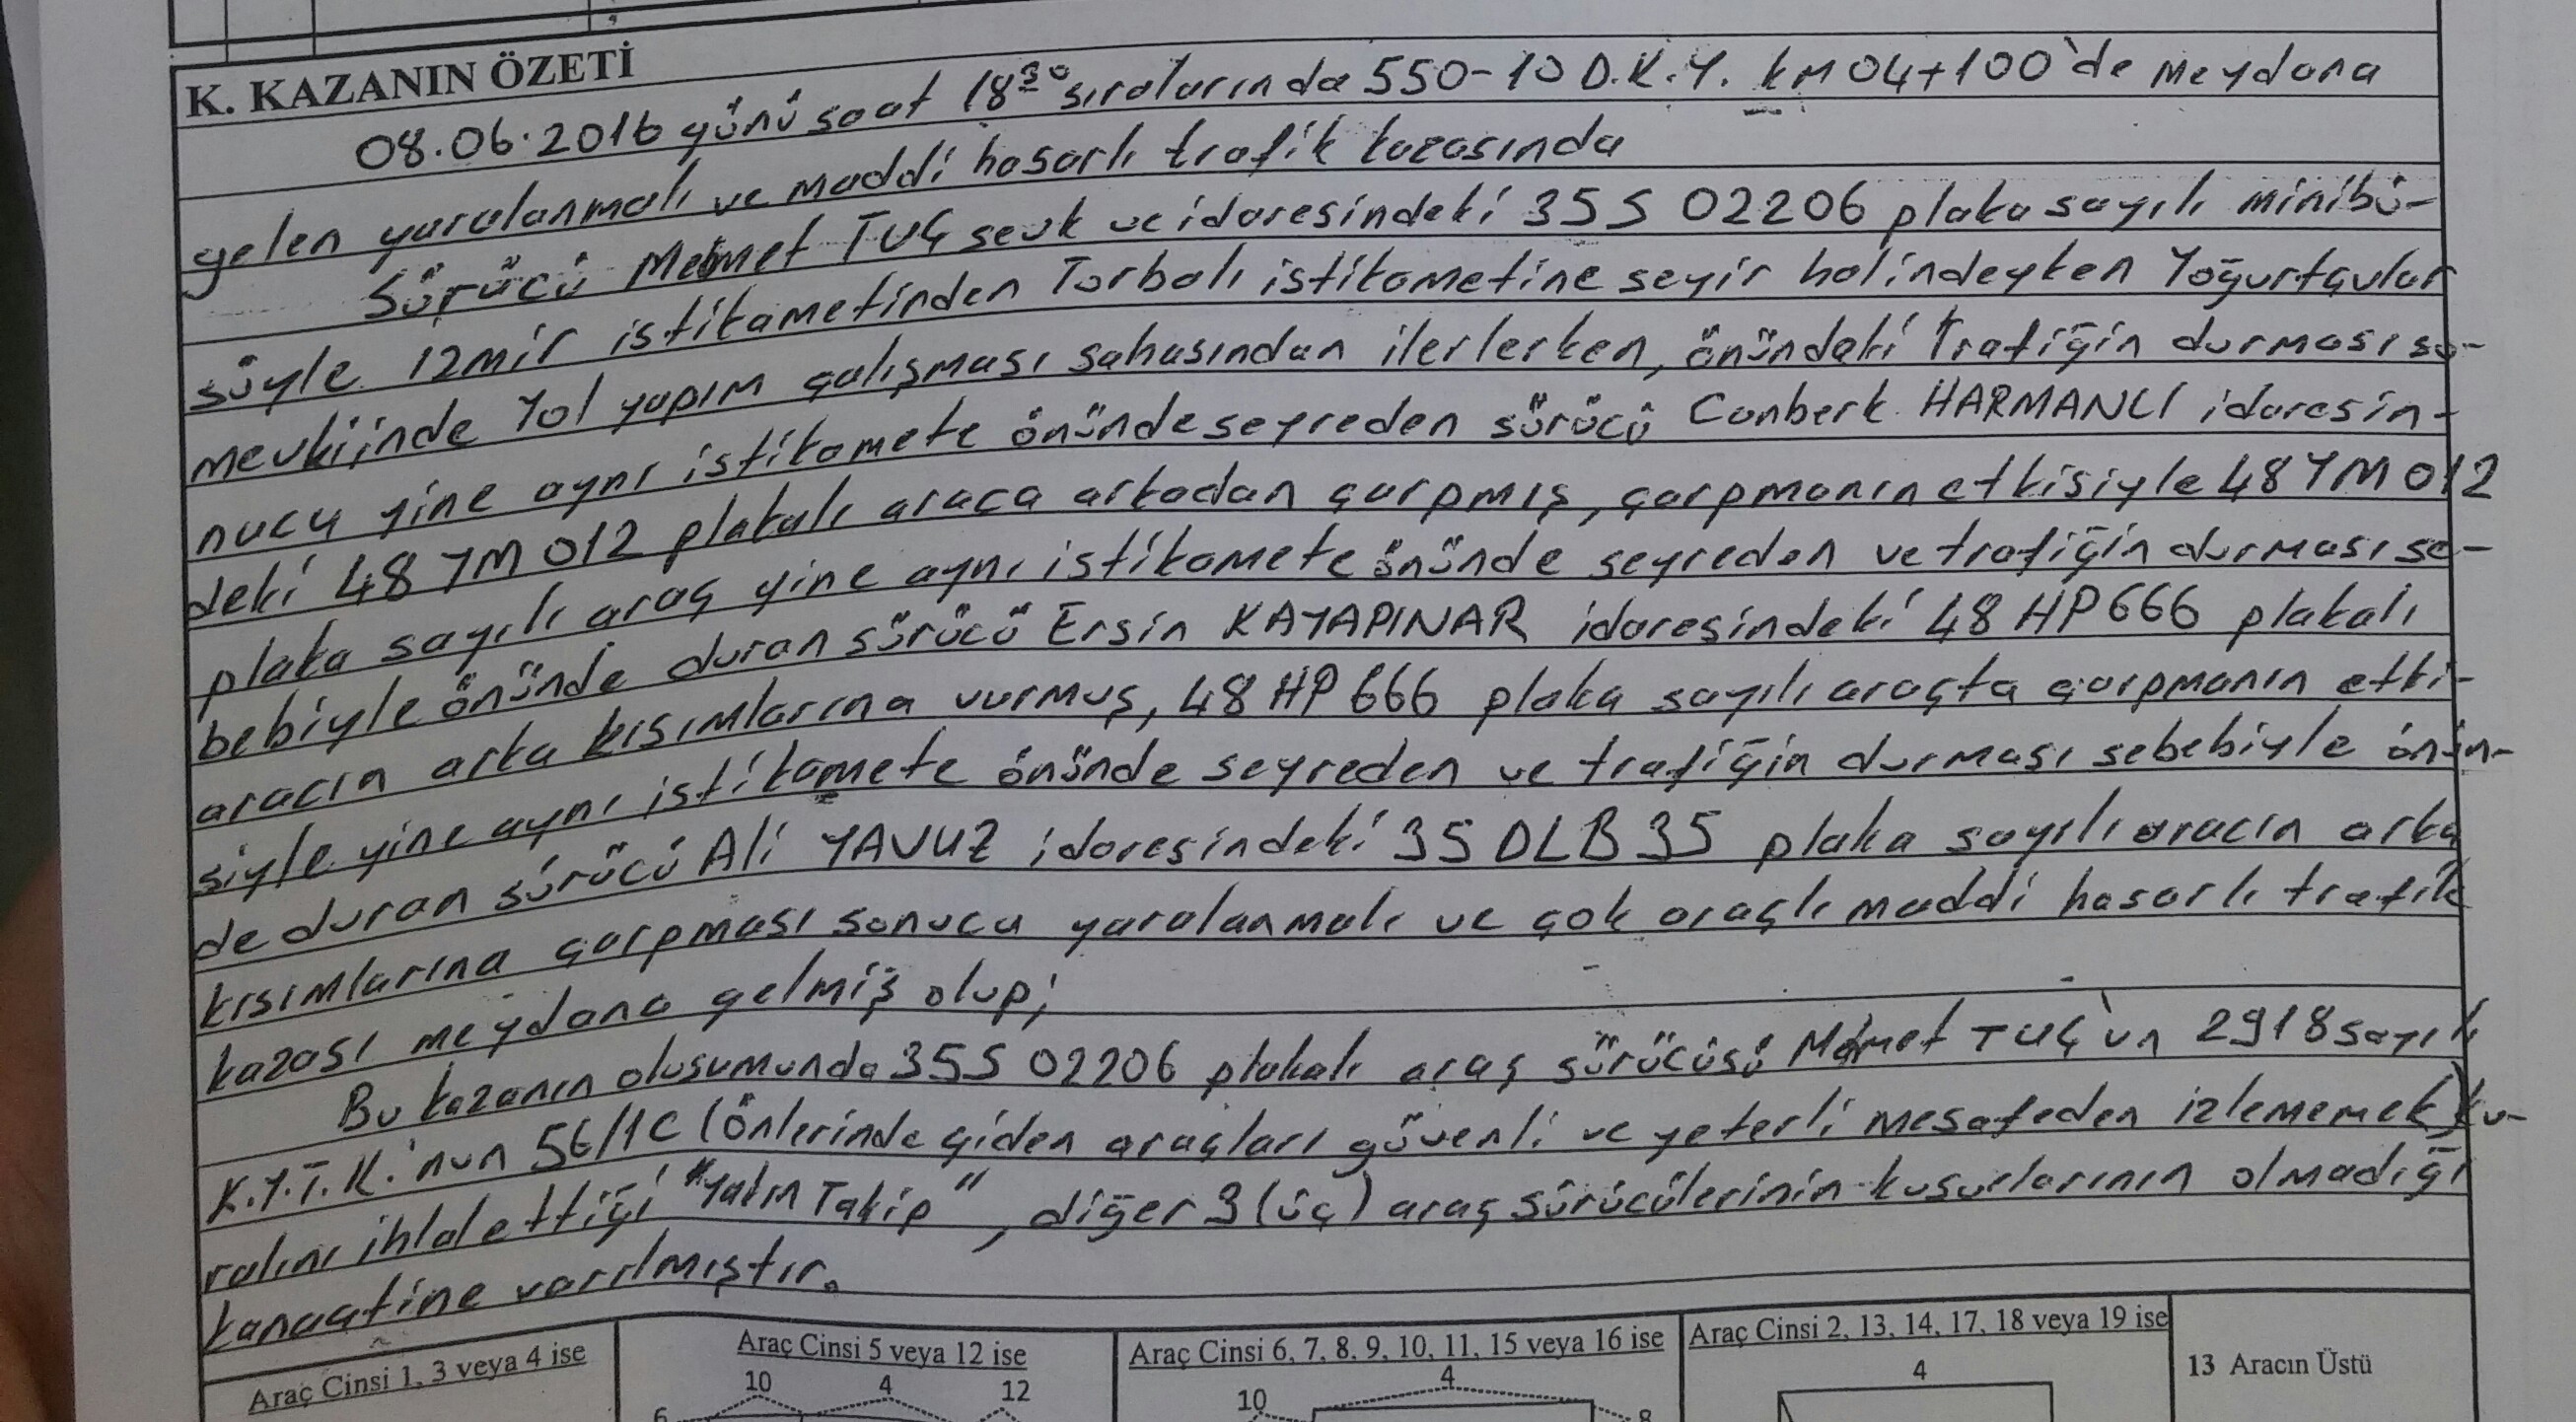 K. KAZANIN ÖZETİ
08.06.2016 günü saat 18³⁰ sıralarında 550-10 D.K.Y. KM 04+100'de Meydana
gelen yaralanmalı ve maddi hasarlı trafik kazasında
Sürücü Mehmet TUÇ sevk ve idaresindeki 35 S 02206 plaka sayılı minibü-
süyle İzmir istikametinden Torbalı istikametine seyir halindeyken Yoğurtçular
mevkiinde Yol yapım çalışması sahasından ilerlerken, önündeki Trafiğin durması so-
nucu yine aynı istikamete önünde seyreden sürücü Canberk HARMANCI idaresin-
deki 48 YM 012 plakalı araca arkadan çarpmış, çarpmanın etkisiyle 48 YM 012
plaka sayılı araç yine aynı istikamete önünde seyreden ve trafiğin durması se-
bebiyle önünde duran sürücü Ersin KAYAPINAR idaresindeki 48 HP 666 plakalı
aracın arka kısımlarına vurmuş, 48 HP 666 plaka sayılı araçta çarpmanın etki-
siyle yine aynı istikamete önünde seyreden ve trafiğin durması sebebiyle önün-
de duran sürücü Ali YAVUZ idaresindeki 35 DLB 35 plaka sayılı aracın arka
kısımlarına çarpması sonucu yaralanmalı ve çok araçlı maddi hasarlı trafik
kazası meydana gelmiş olup;
Bu kazanın olusumunda 35 S 02206 plakalı araç sürücüsü Mehmet TUÇ'un 2918 sayılı
K.Y.T.K.'nun 56/1C (Önlerinde giden araçları güvenli ve yeterli mesafeden izlememek) ku-
ralını ihlal ettiği "Yakın Takip", diğer 3 (üç) araç sürücülerinin kusurlarının olmadığı
kanaatine varılmıştır.
Araç Cinsi 1, 3 veya 4 ise
Araç Cinsi 5 veya 12 ise
Araç Cinsi 6, 7, 8, 9, 10, 11, 15 veya 16 ise
Araç Cinsi 2, 13, 14, 17, 18 veya 19 ise
13 Aracın Üstü
10 4 12
4
4
6
10
8